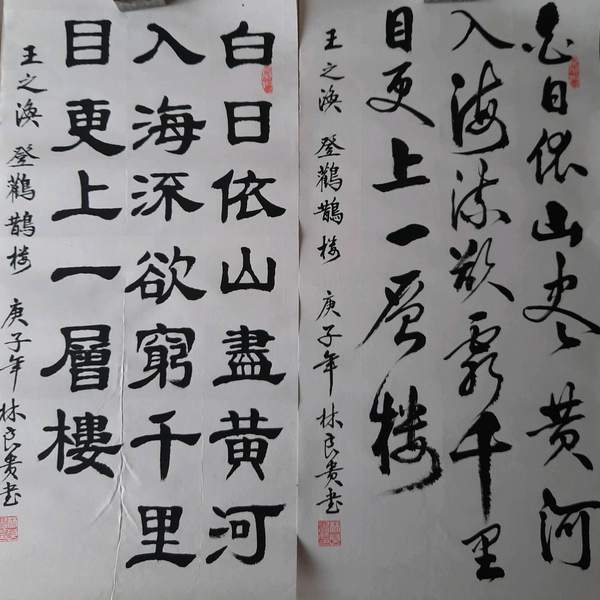 白日依山盡黄河
入海流欲窮千里
目更上一層樓
王之涣 登鸛鵲楼 庚子年 林良贵书
白日依山尽黄河
入海流欲窮千里
目更上一層楼
王之涣 登鸛鵲楼 庚子年 林良贵书